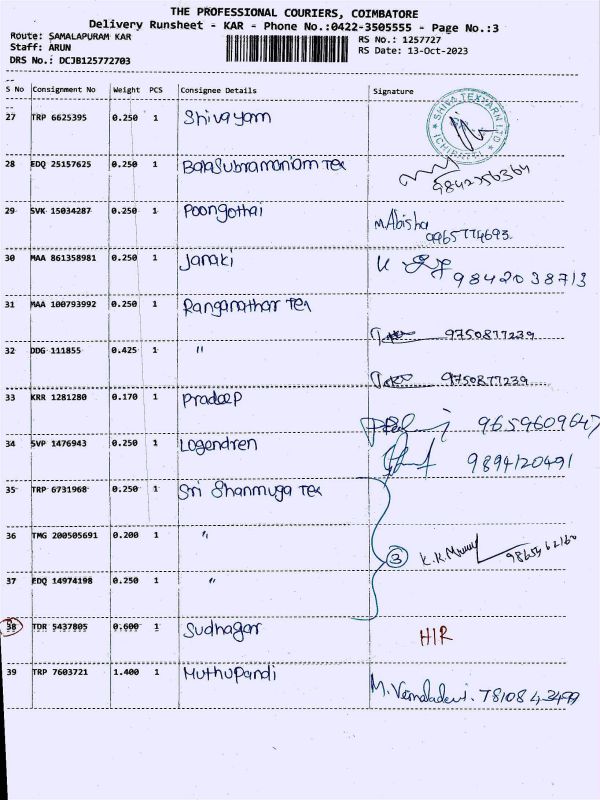 THE PROFESSIONAL COURIERS, COIMBATORE
Delivery Runsheet - KAR - Phone No.:0422-3505555 - Page No.:3
Route: SAMALAPURAM KAR RS No.: 1257727
Staff: ARUN RS Date: 13-Oct-2023
DRS No.: DCJB125772703
S No Consignment No Weight PCS Consignee Details Signature
27 TRP 6625395 0.250 1 Shivayam SHIVA TEXYARN LTD
28 EDQ 25157625 0.250 1 BalaSubramaniam Tex
29 SVK 15034287 0.250 1 Poongothai M.Abisha
9965774693
30 MAA 861358981 0.250 1 Janaki 9842038713
31 MAA 100793992 0.250 1 Ranganathar Tex
9750877239
32 DDG 111855 0.425 1 "
9750877239
33 KRR 1281280 0.170 1 Pradeep 9659609647
34 SVP 1476943 0.250 1 Logendren 9894120491
35 TRP 6731968 0.250 1 Sri Shanmuga Tex
36 TMG 200505691 0.200 1 " 3
37 EDQ 14974198 0.250 1 "
38 TDR 5437805 0.600 1 Sudhagar HIR
39 TRP 7603721 1.400 1 Muthupandi M. Vemaladevi. 7810843499